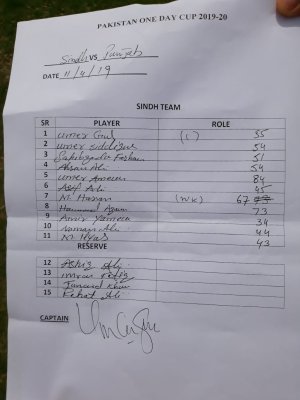 PAKISTAN ONE DAY CUP 2019-20
Sindh VS Punjab
DATE 11/4/19
SINDH TEAM
SR PLAYER ROLE
1 Umer Gul (C) 55
2 Umer Siddique 54
3 Sahibzada Farhan 51
4 Ahsan Ali 54
5 Umer 84
6 Asif Ali 45
7 M. Hassan (WK) 67
8 Hammad Azam 73
9 Amir Yameen 34
10 Noman Ali 44
11 M. Ilyas 43
RESERVE
12 Ali
13
14 Junaid Khan
15 Ali
CAPTAIN